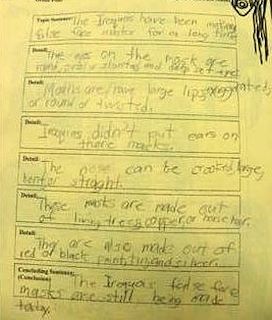 Topic Sentence: The Iroquis have been making
false face masks for a long time.
Detail: The eyes on the mask are
round, oval or slanting and deep set
Detail: Mouths are/have large lips,
or round or twisted.
Detail: Iroquis didn't put ears on
there masks.
Detail: The nose can be crooked, large,
bent or straght.
Detail: These masks are made out
of living trees, copper, or horse hair.
Detail: They are also made out of
red or black paint, tin, and silver.
Concluding Sentence:
(Conclusion) The Iroquois false face
masks are still being made
today.